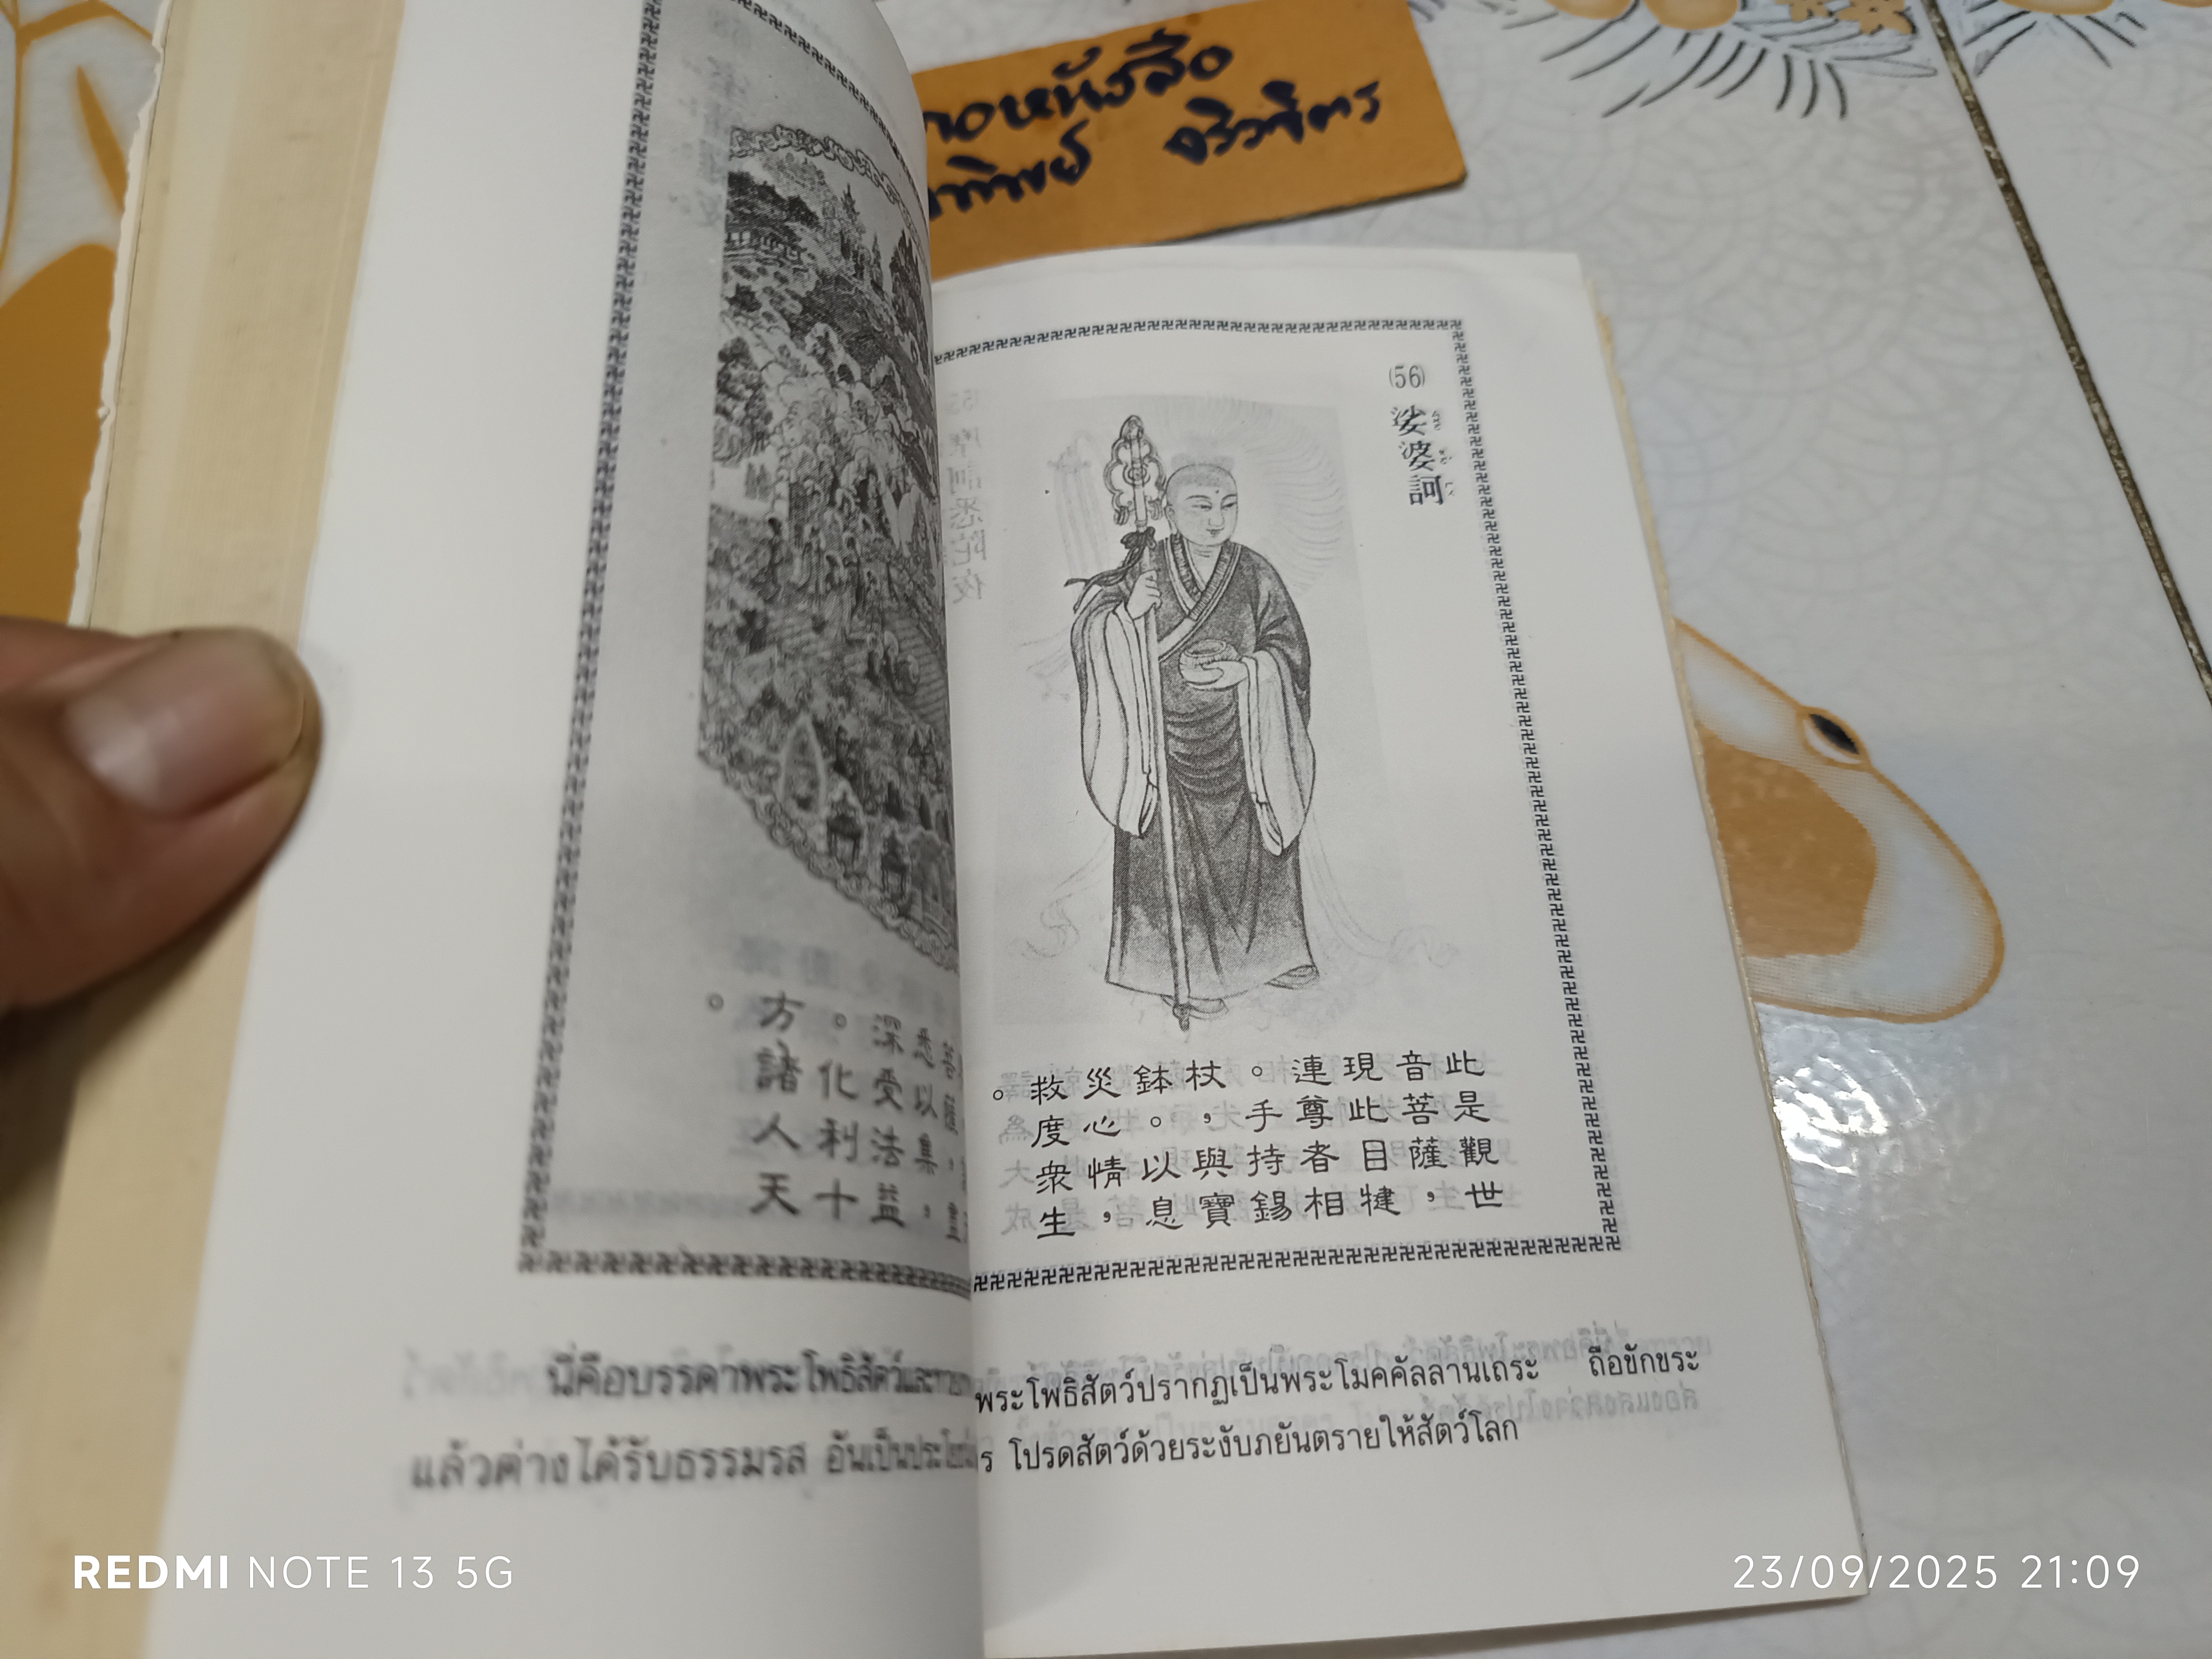 หนังสือ
悉以集，
深受法益
。化利十
方諸人天
。
นี่คือบรรดาพระโพธิสัตว์และ
แล้วต่างได้รับธรรมรส อันเป็น
(56) 娑婆訶
此是觀世
音菩薩，
現此目犍
連尊者相
。手持錫
杖，與寶
鉢。以息
災心情，
救度衆生
。
พระโพธิสัตว์ปรากฏเป็นพระโมคคัลลานเถระ ถือขักขระ
ร โปรดสัตว์ด้วยระงับภยันตรายให้สัตว์โลก
REDMI NOTE 13 5G
23/09/2025 21:09